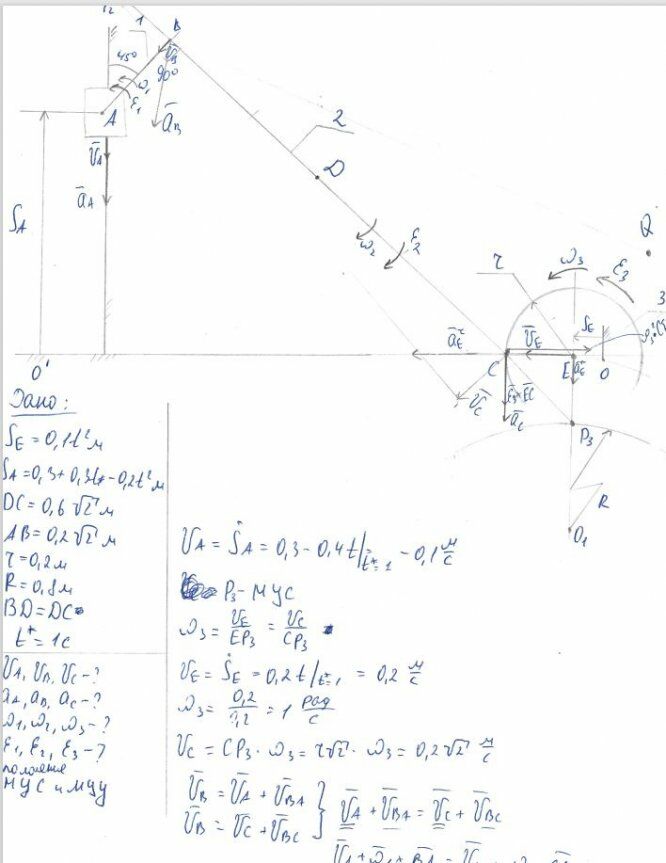 1
B
45°
ω₁
90°
ε₁
V̄_B
A
ā_B
V̄_A
ā_A
S_A
2
D
ω₂
ε₂
Q
ω₃
ε₃
r
3
S_E
ā_E^τ
V̄_E
O'
C
E
O
V̄_C
ā_C
P₃
R
O₁
Дано:
S_E = 0,1t² м
S_A = 0,3 + 0,3t - 0,2t² м
DC = 0,6√2 м
AB = 0,2√2 м
r = 0,2 м
R = 0,8 м
BD = DC
t* = 1 c
V_A, V_B, V_C - ?
a_A, a_B, a_C - ?
ω₁, ω₂, ω₃ - ?
ε₁, ε₂, ε₃ - ?
положения
МЦС и МЦУ
V_A = Ṡ_A = 0,3 - 0,4t |_{t*=1} - 0,1 м/с
P₃ - МЦС
ω₃ = V_E/EP₃ = V_C/CP₃
V_E = Ṡ_E = 0,2t |_{t*=1} = 0,2 м/с
ω₃ = 0,2/0,2 = 1 рад/с
V_C = CP₃ · ω₃ = r√2 · ω₃ = 0,2√2 м/с
V̄_B = V̄_A + V̄_BA
V̄_B = V̄_C + V̄_BC
} V̄_A + V̄_BA = V̄_C + V̄_BC